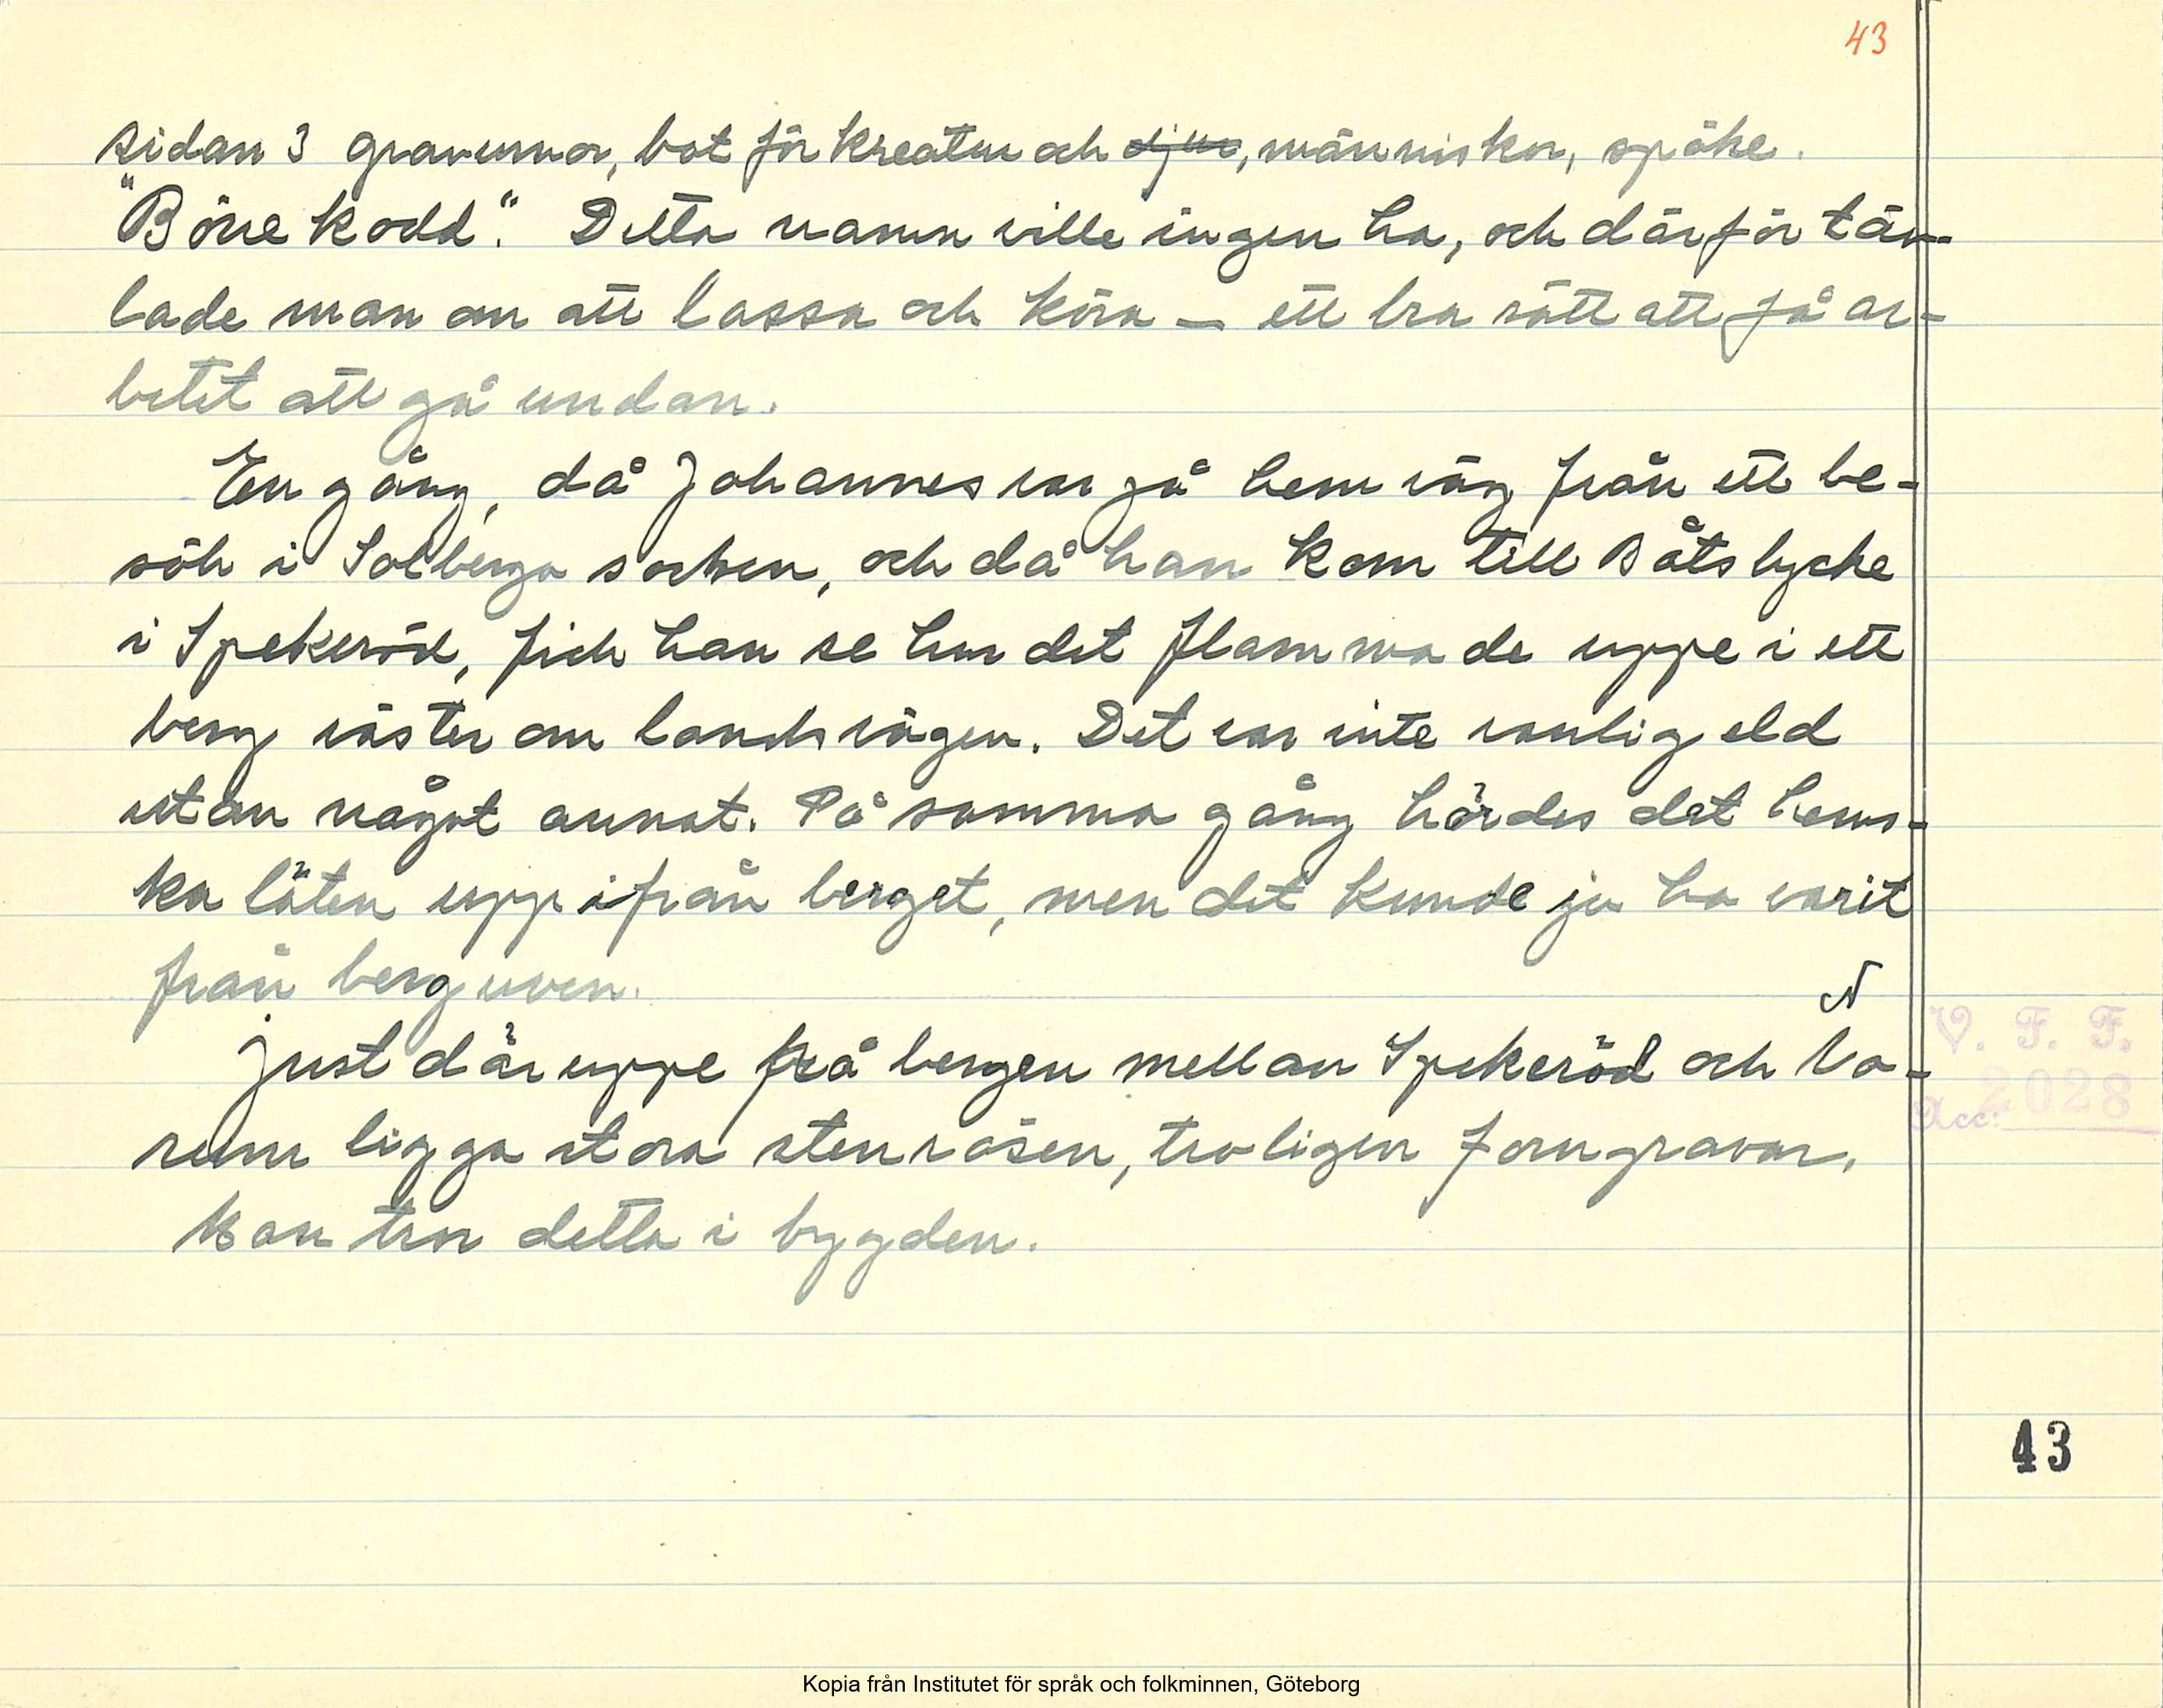 43
sidan 3 gravarna, bot för kreatur och djur, människor, spöke.
"Böne kodd." Detta namn ville ingen ha, och därför täv-
lade man om att lassa och köra – ett bra sätt att få ar-
betet att gå undan.
En gång, då Johannes var på hemväg från ett be-
sök i Solberga socken, och då han kom till Båtslycke
i Spekeröd, fick han se hur det flammade uppe i ett
berg väster om landsvägen. Det var inte vanlig eld
utan något annat. På samma gång hördes det hems-
ka läten uppifrån berget, men det kunde ju ha varit
från berguven.
N
Just där uppe på bergen mellan Spekeröd och No-
rum ligga stora stenrösen, troligen forngravar,
kan tro detta i bygden.
V. F. F.
Acc: 2028
43
Kopia från Institutet för språk och folkminnen, Göteborg